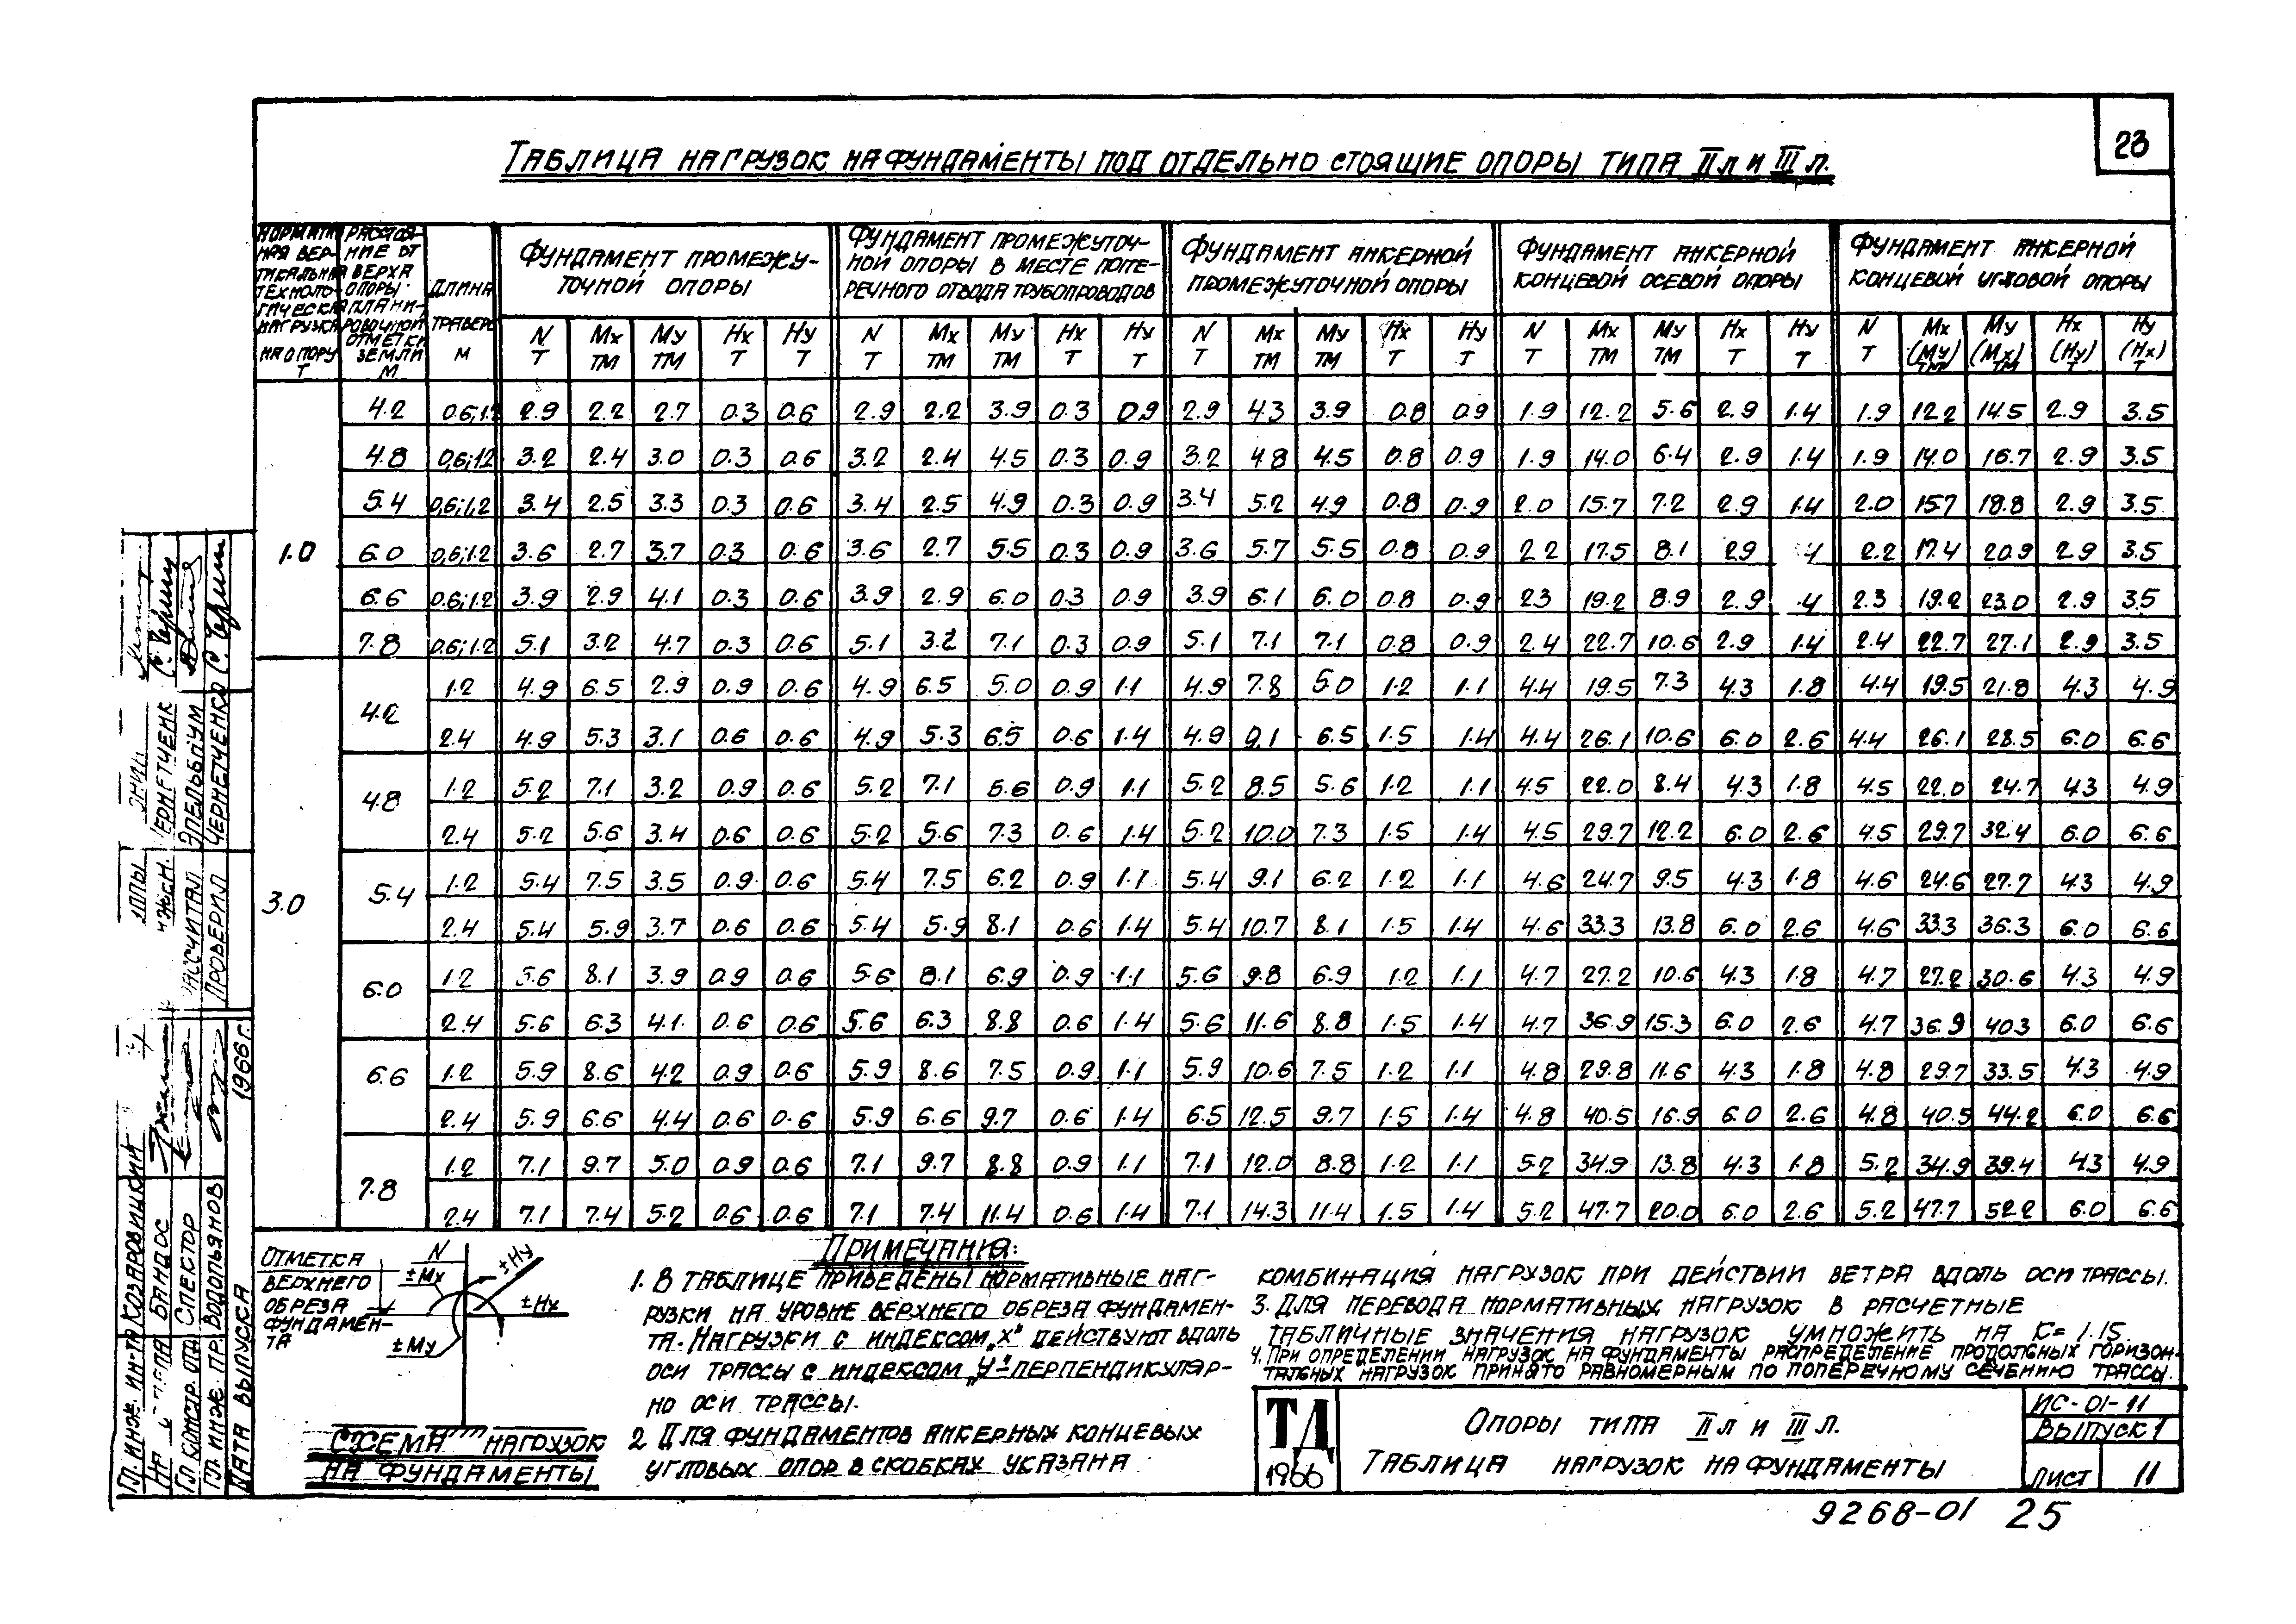 23
Таблица нагрузок на фундаменты под отдельно стоящие опоры типа IIл и IIIл.
Норматив-
ная вер-
тикальная
техноло-
гическая
нагрузка
на опору
Т
Расстоя-
ние от
верха
опоры
до плани-
ровочной
отметки
земли
м
Длина
траверс
м
Фундамент промежу-
точной опоры
Фундамент промежуточ-
ной опоры в месте попе-
речного отвода трубопроводов
Фундамент анкерной
промежуточной опоры
Фундамент анкерной
концевой осевой опоры
Фундамент анкерной
концевой угловой опоры
N Mx My Hx Hy N Mx My Hx Hy N Mx My Hx Hy N Mx My Hx Hy N Mx My Hx Hy
Т ТМ ТМ Т Т Т ТМ ТМ Т Т Т ТМ ТМ Т Т Т ТМ ТМ Т Т Т (My) ТМ (Mx) ТМ (Hy) Т (Hx) Т
1.0
4.2 0.6;1.2 2.9 2.2 2.7 0.3 0.6 2.9 2.2 3.9 0.3 0.9 2.9 4.3 3.9 0.8 0.9 1.9 12.2 5.6 2.9 1.4 1.9 12.2 14.5 2.9 3.5
4.8 0,6;1.2 3.2 2.4 3.0 0.3 0.6 3.2 2.4 4.5 0.3 0.9 3.2 4.8 4.5 0.8 0.9 1.9 14.0 6.4 2.9 1.4 1.9 14.0 16.7 2.9 3.5
5.4 0,6;1.2 3.4 2.5 3.3 0.3 0.6 3.4 2.5 4.9 0.3 0.9 3.4 5.2 4.9 0.8 0.9 2.0 15.7 7.2 2.9 1.4 2.0 15.7 18.8 2.9 3.5
6.0 0,6;1.2 3.6 2.7 3.7 0.3 0.6 3.6 2.7 5.5 0.3 0.9 3.6 5.7 5.5 0.8 0.9 2.2 17.5 8.1 2.9 4 2.2 17.4 20.9 2.9 3.5
6.6 0.6;1.2 3.9 2.9 4.1 0.3 0.6 3.9 2.9 6.0 0.3 0.9 3.9 6.1 6.0 0.8 0.9 2.3 19.2 8.9 2.9 .4 2.3 19.2 23.0 2.9 3.5
7.8 0.6;1.2 5.1 3.2 4.7 0.3 0.6 5.1 3.2 7.1 0.3 0.9 5.1 7.1 7.1 0.8 0.9 2.4 22.7 10.6 2.9 1.4 2.4 22.7 27.1 2.9 3.5
3.0
4.2 1.2 4.9 6.5 2.9 0.9 0.6 4.9 6.5 5.0 0.9 1.1 4.9 7.8 5.0 1.2 1.1 4.4 19.5 7.3 4.3 1.8 4.4 19.5 21.8 4.3 4.9
2.4 4.9 5.3 3.1 0.6 0.6 4.9 5.3 6.5 0.6 1.4 4.9 9.1 6.5 1.5 1.4 4.4 26.1 10.6 6.0 2.6 4.4 26.1 28.5 6.0 6.6
4.8 1.2 5.2 7.1 3.2 0.9 0.6 5.2 7.1 5.6 0.9 1.1 5.2 8.5 5.6 1.2 1.1 4.5 22.0 8.4 4.3 1.8 4.5 22.0 24.7 4.3 4.9
2.4 5.2 5.6 3.4 0.6 0.6 5.2 5.6 7.3 0.6 1.4 5.2 10.0 7.3 1.5 1.4 4.5 29.7 12.2 6.0 2.6 4.5 29.7 32.4 6.0 6.6
5.4 1.2 5.4 7.5 3.5 0.9 0.6 5.4 7.5 6.2 0.9 1.1 5.4 9.1 6.2 1.2 1.1 4.6 24.7 9.5 4.3 1.8 4.6 24.6 27.7 4.3 4.9
2.4 5.4 5.9 3.7 0.6 0.6 5.4 5.9 8.1 0.6 1.4 5.4 10.7 8.1 1.5 1.4 4.6 33.3 13.8 6.0 2.6 4.6 33.3 36.3 6.0 6.6
6.0 1.2 5.6 8.1 3.9 0.9 0.6 5.6 8.1 6.9 0.9 1.1 5.6 9.8 6.9 1.2 1.1 4.7 27.2 10.6 4.3 1.8 4.7 27.2 30.6 4.3 4.9
2.4 5.6 6.3 4.1 0.6 0.6 5.6 6.3 8.8 0.6 1.4 5.6 11.6 8.8 1.5 1.4 4.7 36.9 15.3 6.0 2.6 4.7 36.9 40.3 6.0 6.6
6.6 1.2 5.9 8.6 4.2 0.9 0.6 5.9 8.6 7.5 0.9 1.1 5.9 10.6 7.5 1.2 1.1 4.8 29.8 11.6 4.3 1.8 4.8 29.7 33.5 4.3 4.9
2.4 5.9 6.6 4.4 0.6 0.6 5.9 6.6 9.7 0.6 1.4 6.5 12.5 9.7 1.5 1.4 4.8 40.5 16.9 6.0 2.6 4.8 40.5 44.2 6.0 6.6
7.8 1.2 7.1 9.7 5.0 0.9 0.6 7.1 9.7 8.8 0.9 1.1 7.1 12.0 8.8 1.2 1.1 5.2 34.9 13.8 4.3 1.8 5.2 34.9 39.4 4.3 4.9
2.4 7.1 7.4 5.2 0.6 0.6 7.1 7.4 11.4 0.6 1.4 7.1 14.3 11.4 1.5 1.4 5.2 47.7 20.0 6.0 2.6 5.2 47.7 52.2 6.0 6.6
Отметка
верхнего
обреза
фундамен-
та
N
±Mx
±Hy
±Hx
±My
Схема нагрузок
на фундаменты
Примечания:
1. В таблице приведены нормативные наг-
рузки на уровне верхнего обреза фундамен-
та. Нагрузки с индексом „x" действуют вдоль
оси трассы с индексом „y"-перпендикуляр-
но оси трассы.
2 Для фундаментов анкерных концевых
угловых опор в скобках указана
комбинация нагрузок при действии ветра вдоль оси трассы.
3. Для перевода нормативных нагрузок в расчетные
табличные значения нагрузок умножить на K=1.15.
4. При определении нагрузок на фундаменты распределение продольных горизон-
тальных нагрузок принято равномерным по поперечному сечению трассы.
ТД
1966
Опоры типа IIл и IIIл.
Таблица нагрузок на фундаменты
ИС-01-11
Выпуск 1
Лист 11
9268-01 25
Гл. инж. ин-та Козаровицкий
Бандос
Гл. констр. отд Спектор
Гл. инж. пр. Водопьянов
Дата выпуска 1966 г.
Эпельбаум
Проверил Чернетченко